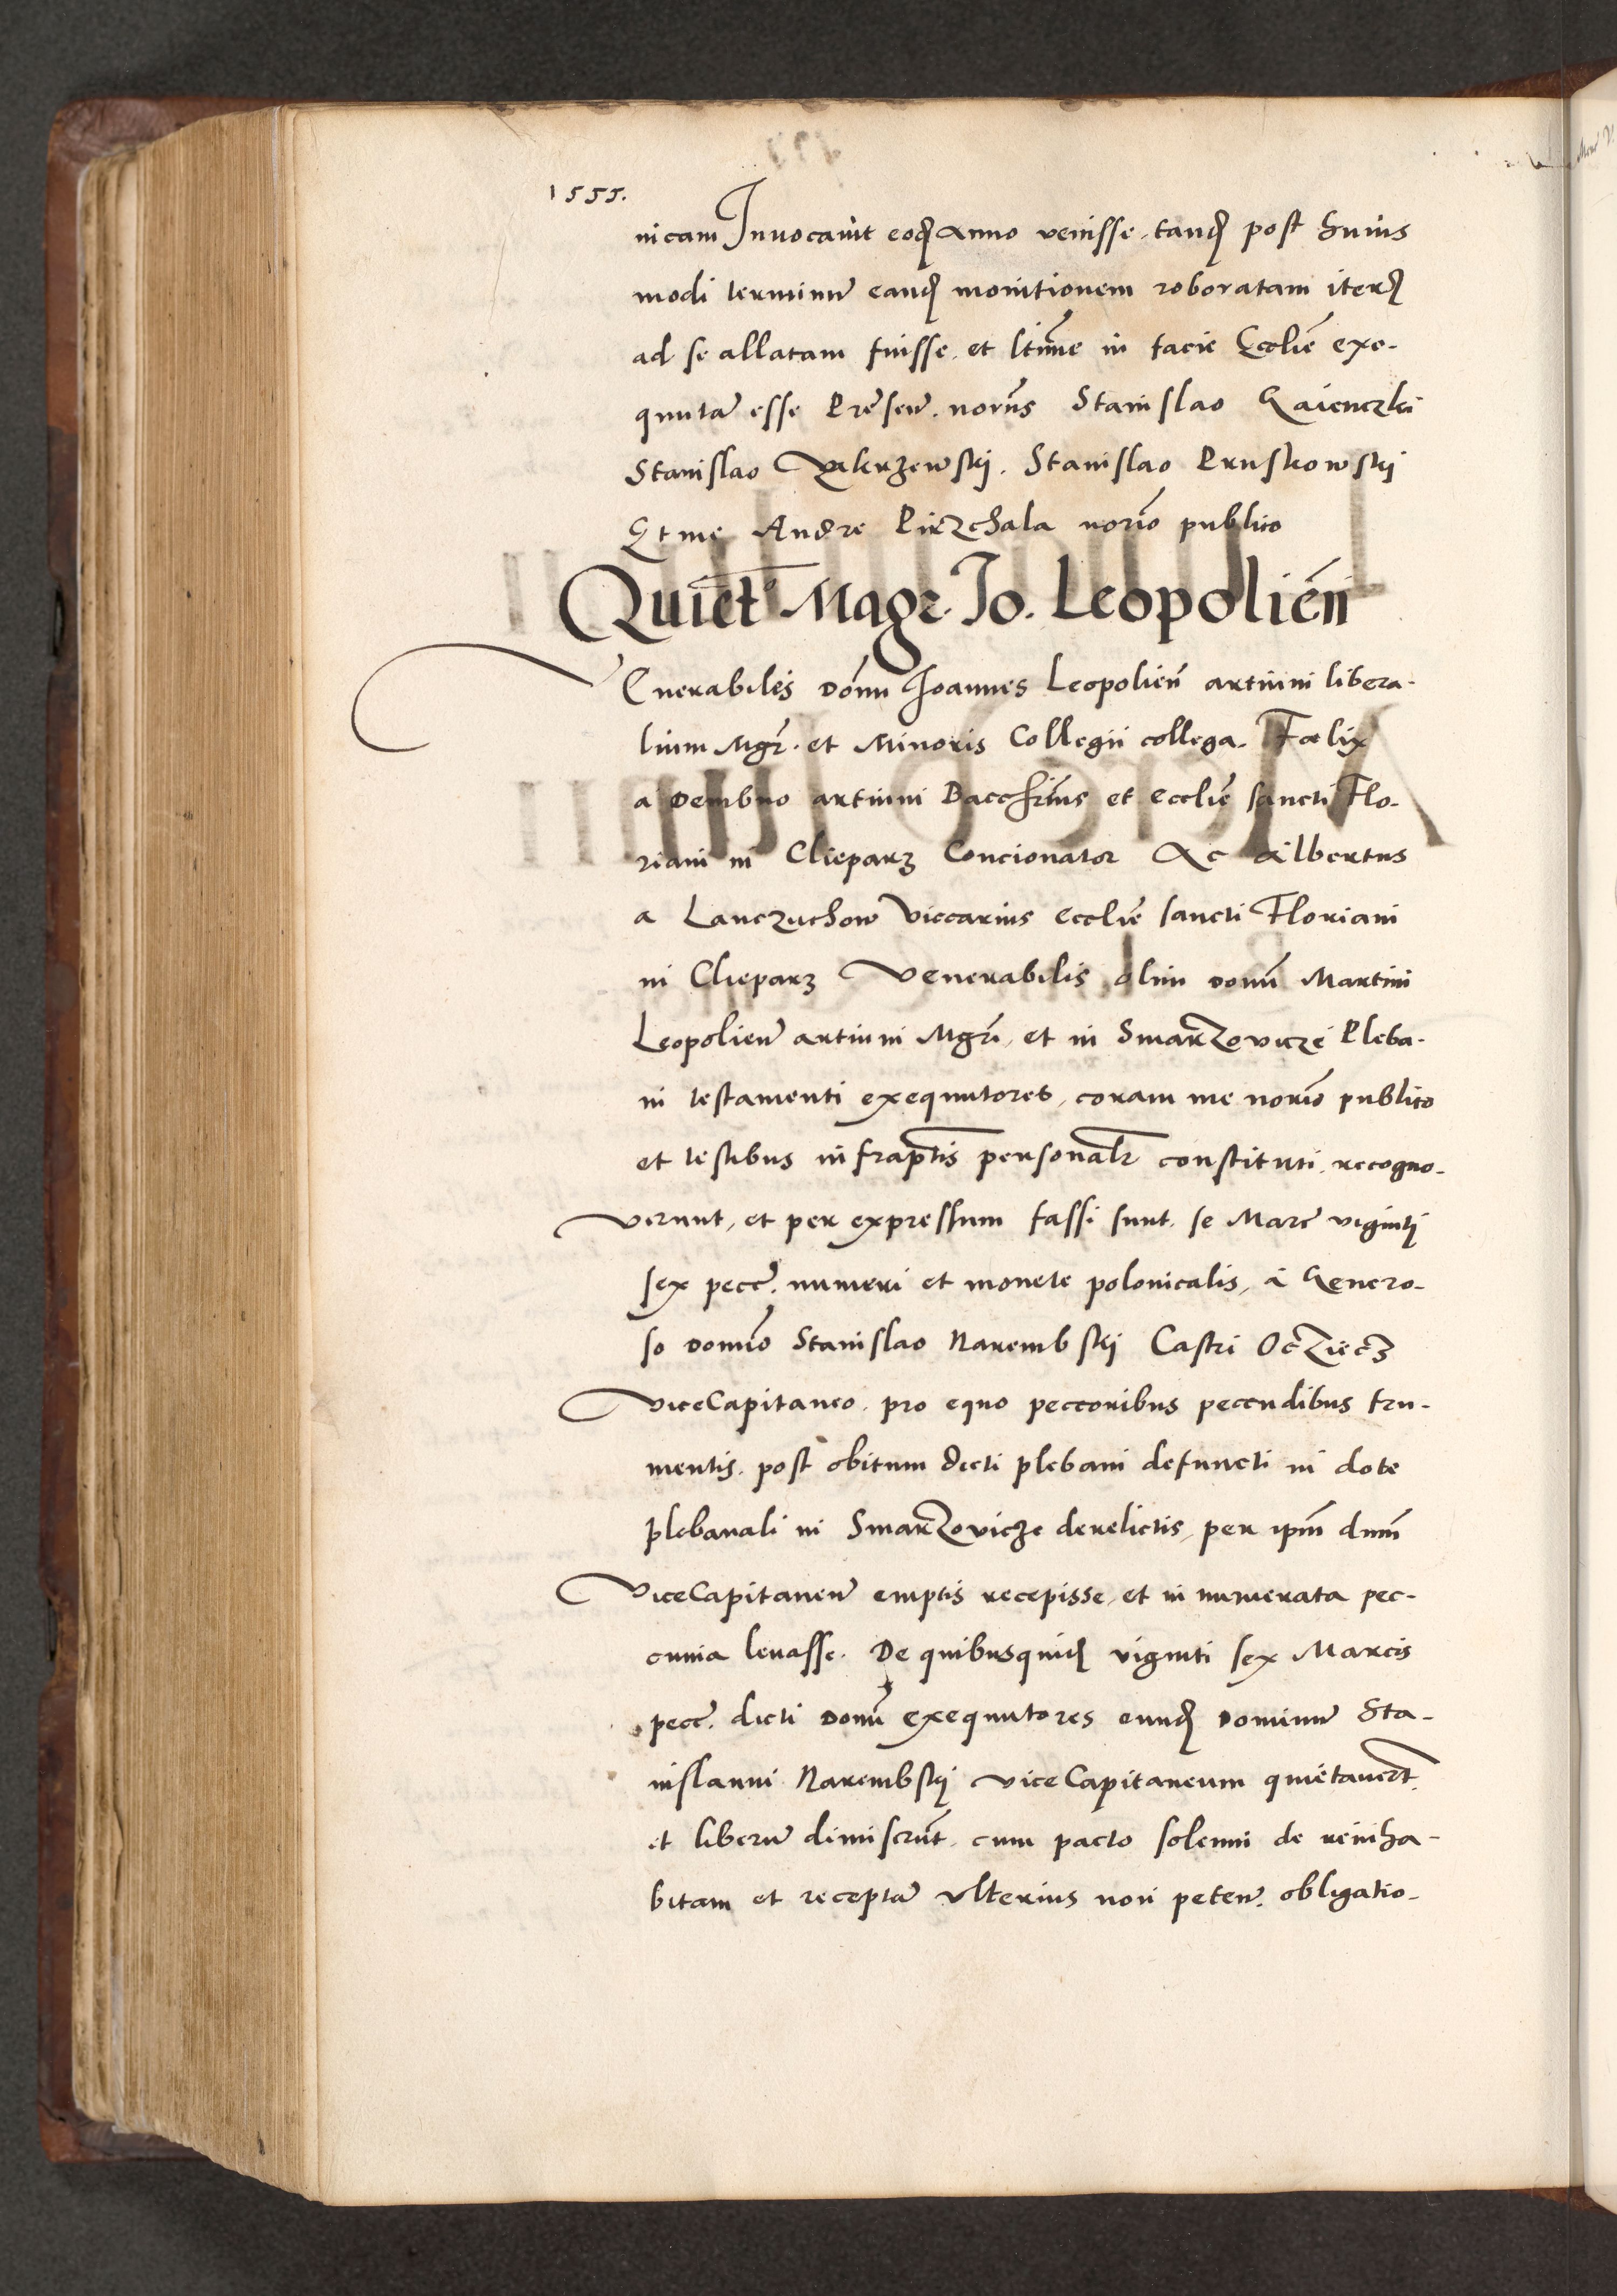 1555.
nicam Invocavit eod anno venisse, tand post huius
modi terminu eand monitionem roboratam iterd
ad se allatam fuisse, et ltime in facie Ecclie exe-
quuta esse Presen. noribs Stanislao Gaienczki
Stanislao Zakrzewskj. Stanislao Pruskowskj
Et me Andre Pirzchala norio publico
Quiet Magr. Jo. Leopolien
Enerabiles Domi Joannes Leopolien artium libera-
lium Mgr. et Minoris Collegii collega. Fœlix
a Dembno artium Bacchrius et ecclie sancti Flo-
riani in Clieparz Concionator Ac Albertus
a Lanczuchow Viccarius Ecclie sancti Floriani
in Clieparz Venerabilis olim domi Martini
Leopolien artium Mgri, et in Smarzovicze Pleba-
ni testamenti exequutores, coram me norio publico
et testibus infraptis personalr constituti, recogno-
verunt, et per expressum fassi sunt, se Marc viginti
sex pecc. numeri et monete polonicalis, a Genero-
so domio Stanislao Narembskj Castri Ocziecz
viceCapitaneo, pro equo peccoribus peccudibus fru-
mentis, post obitum dicti plebani defuncti in dote
plebanali in Smarzovicze derelictis, per ipm dnm
viceCapitaneu emptis recepisse, et in numerata pec-
cunia levasse. De quibusquid viginti sex Marcis
pecc. dicti domi exequutores eund Dominu Sta-
nislaum Narembskj viceCapitaneum quietavert.
et liberu dimiserut, cum pacto solenni de re inha-
bitam et recepta ulterius non peten. obligatio-